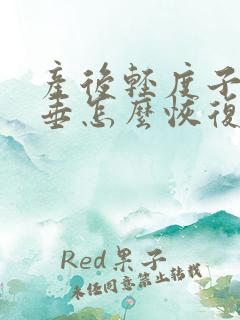 産後輕度子
垂怎麼恢復
Red果子
未任同意禁止转载